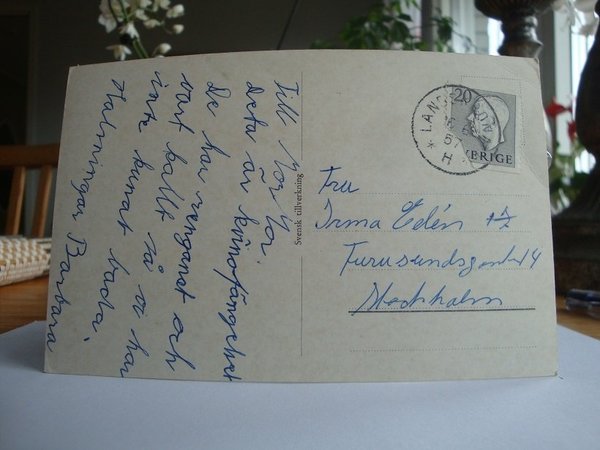 Till Mor Mor.
Detta är kvinnofängelset
De har regnat och
vart kallt så vi har
inte kunnat bada.
Hälsningar Barbara
Svensk tillverkning
20
SVERIGE
Fru
Irma Edén
Furusundsgatan 14
Stockholm